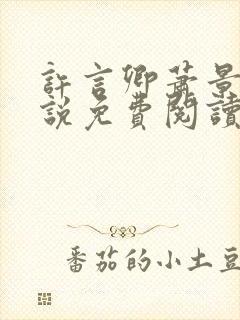 許言卿蕭景
說免費閱讀
番茄的小土豆